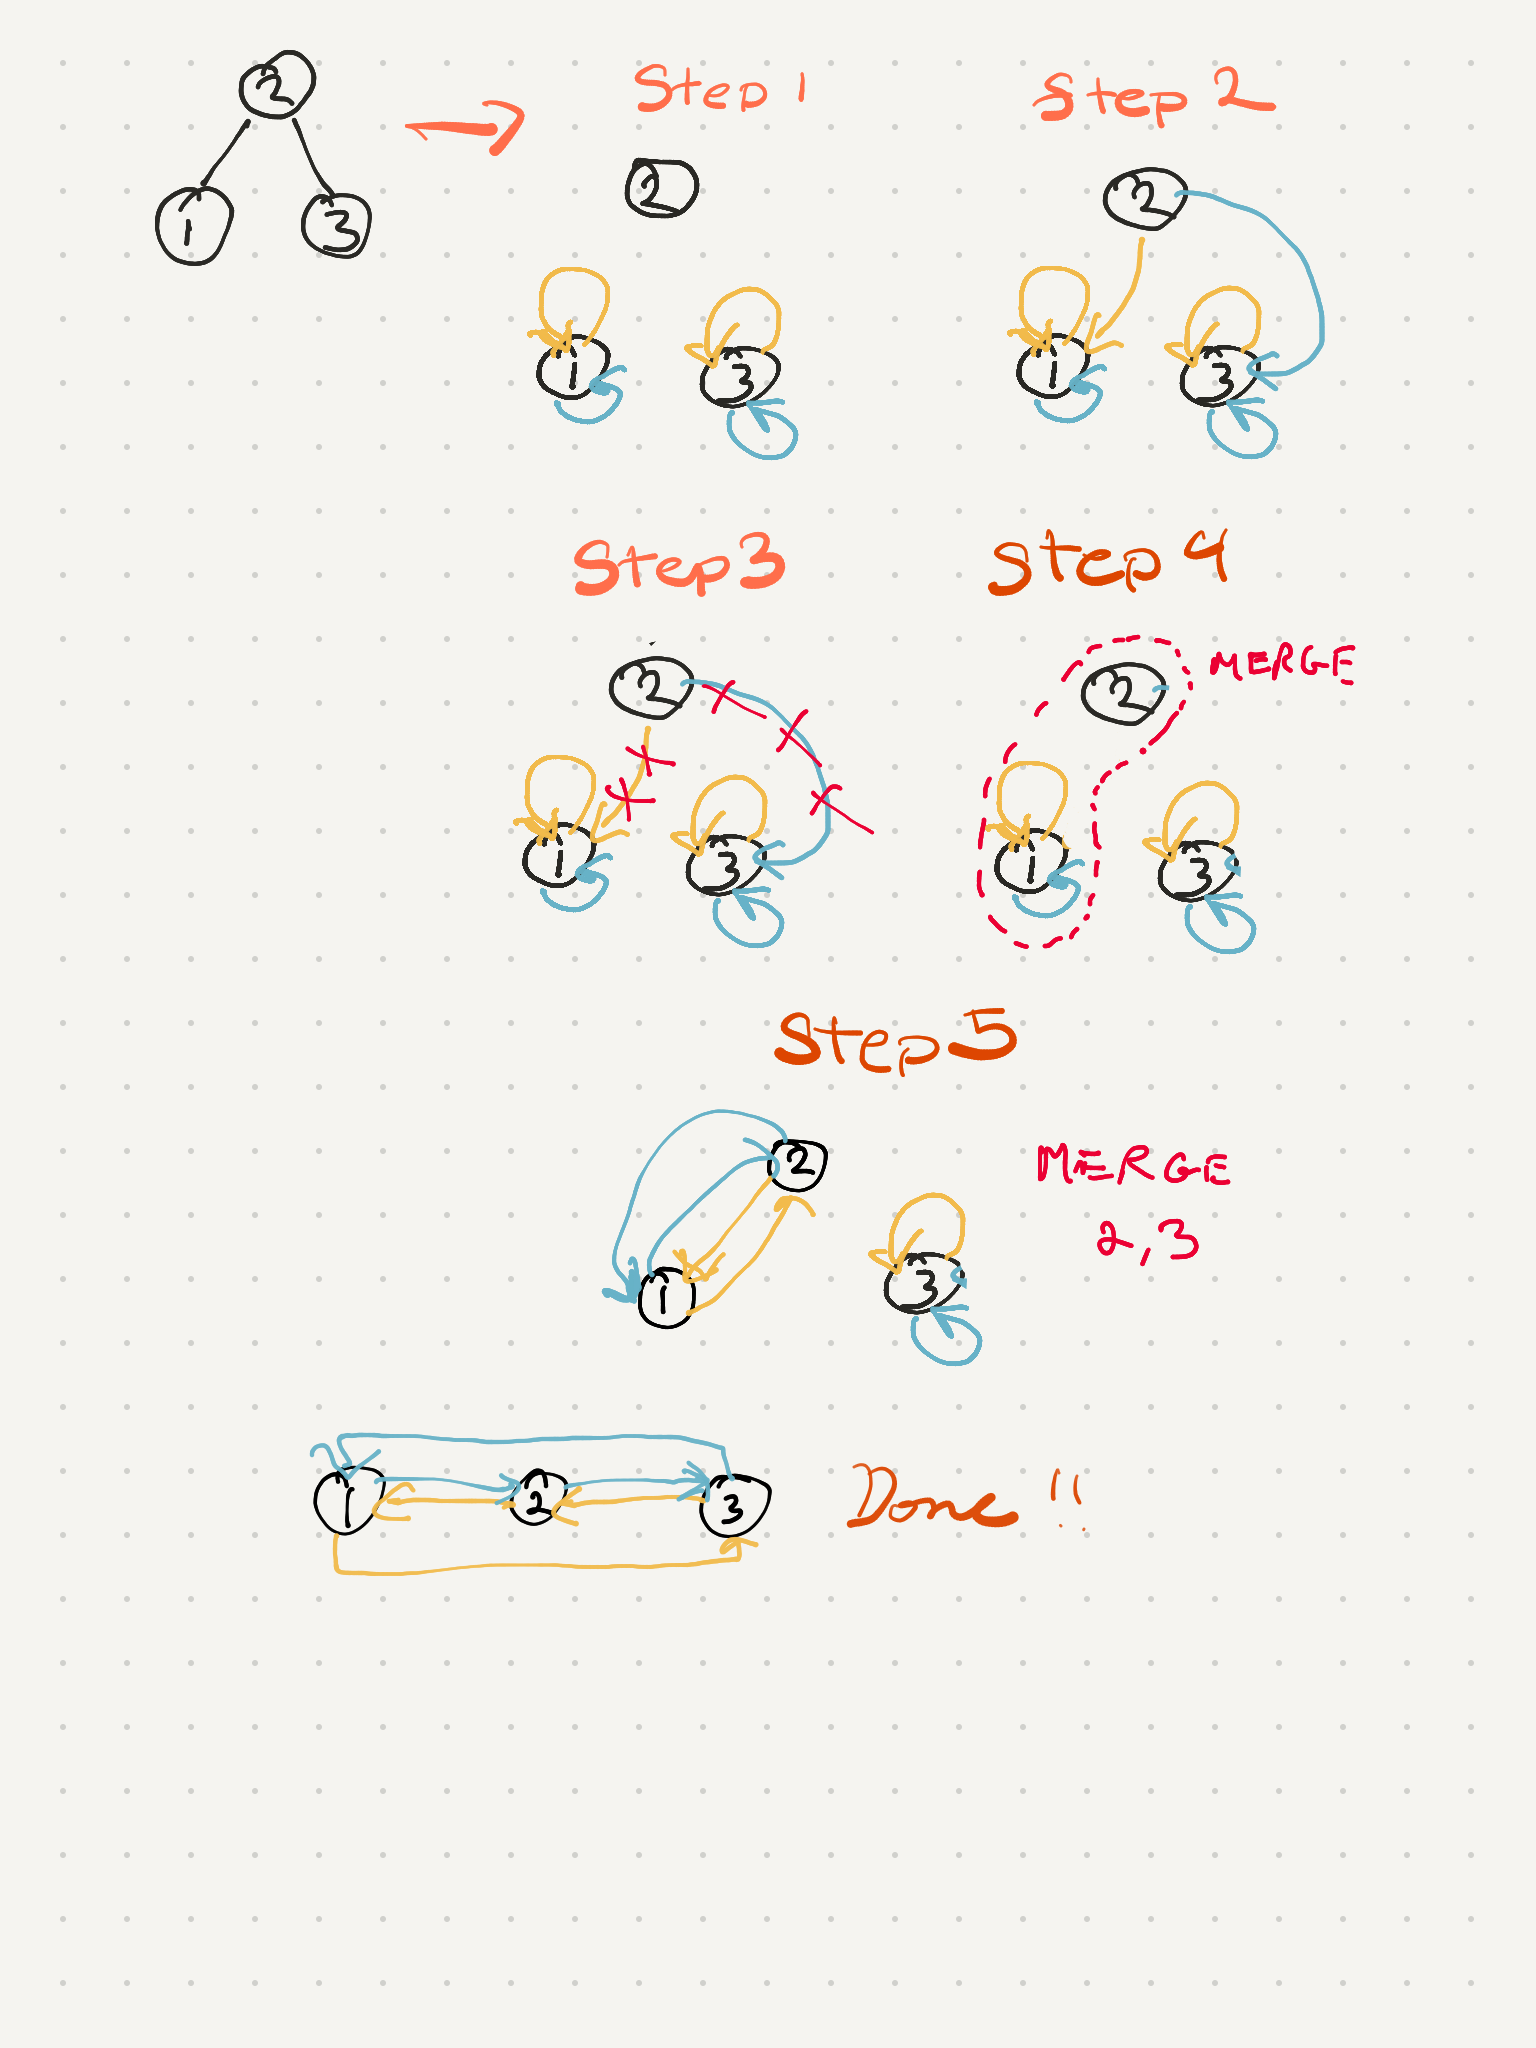 2
1 3
Step 1
2
1 3
Step 2
2
1 3
Step 3
2
1 3
Step 4
2 MERGE
1 3
Step 5
2
1 3
MERGE
2,3
1 2 3 Done !!